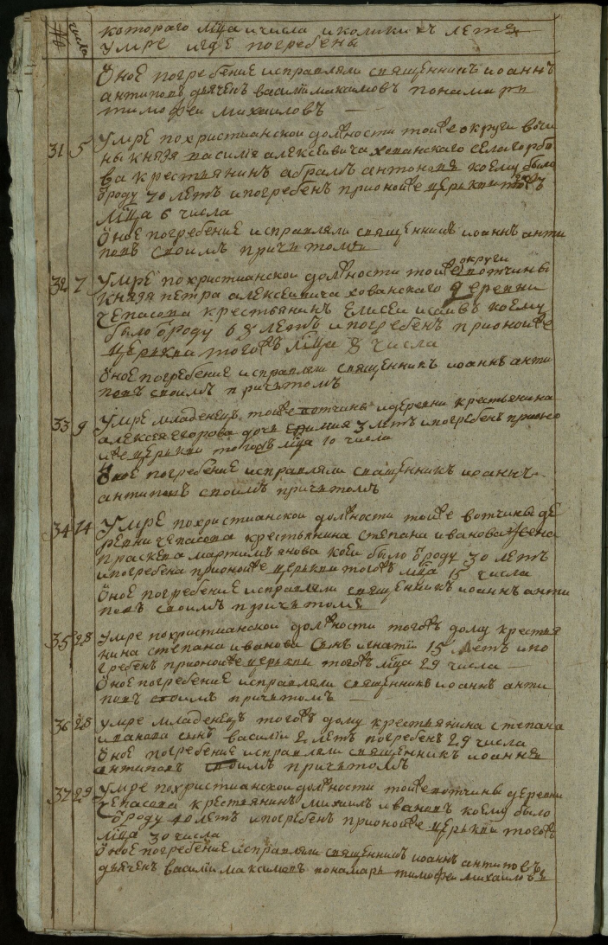 № числа котораго мца и числа и коликихъ летъ
умре и где погребены
Оное погребение исправляли священникъ иоаннъ
антиповъ дьячекъ василий максимовъ понамарь
тимофеи михаиловъ
31 5 Умре похристианской должности тоиже округи вочи
ны князя василия алексеевича хованскаго села
ва крестьянинъ коему было
отроду 70 летъ и погребенъ прионойже церькви тогожъ
мца 6 числа
Оное погребение исправляли священникъ иоаннъ анти
повъ своимъ причьтомъ
округи
32 7 Умре похристианской должности тоиже вотчины
князя петра алексеевича хованскаго деревни
чепасова крестьянинъ Елисеи коему
было отроду 68 летъ и погребенъ прионойже
церькви тогожъ мца 8 числа
Оное погребение исправляли священникъ иоаннъ анти
повъ своимъ причьтомъ
33 9 Умре младенецъ тоиже вотчины и деревни крестьянина
алексея егорова дочь 3 летъ и погребенъ прионо
иже церькви тогожъ мца 10 числа
Оное погребение исправляли священникъ иоаннъ
антиповъ своимъ причьтомъ
34 14 Умре похристианской должности тоиже вотчины де
ревни чепасова крестьянина степана иванова жена
праскева мартимьянова коей было отроду 30 летъ
и погребена прионойже церькви тогожъ мца 15 числа
Оное погребение исправляли священникъ иоаннъ анти
повъ своимъ причьтомъ
35 28 Умре похристианской должности тогожъ дому крестья
нина степана иванова сынъ игнатий 15 летъ и по
гребенъ прионойже церькви тогожъ мца 29 числа
Оное погребение исправляли священникъ иоаннъ анти
повъ своимъ причьтомъ
36 28 умре младенецъ тогожъ дому крестьянина степана
иванова сынъ василий 2 летъ погребенъ 29 числа
Оное погребение исправляли священникъ иоаннъ
антиповъ своимъ причьтомъ
37 29 Умре похристианской должности тоиже вотчины деревни
Чепасова крестьянинъ михаилъ ивановъ коему было
отроду 40 летъ и погребенъ прионойже церькви тогожъ
мца 30 числа
Оное погребение исправляли священникъ иоаннъ антиповъ
дьячекъ василий максимовъ понамарь тимофеи михаиловъ